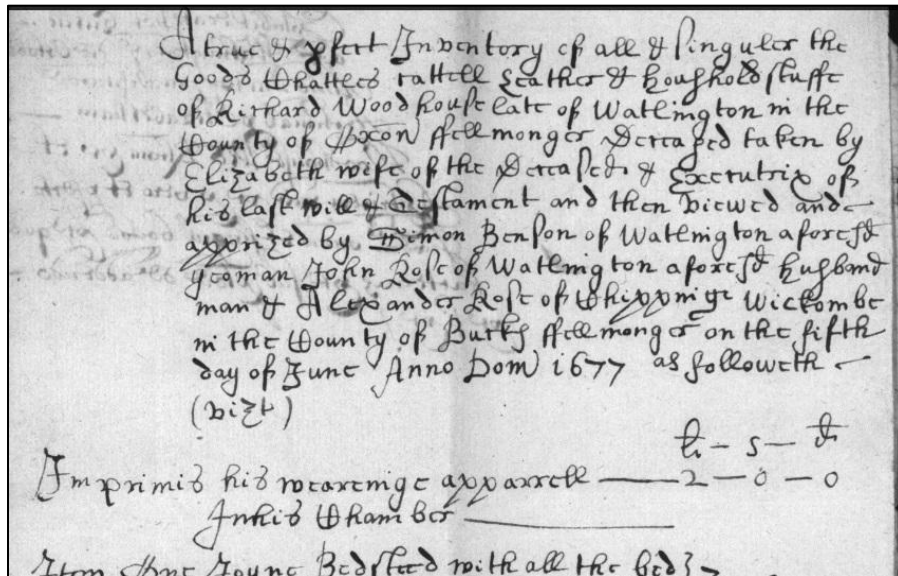 A true & pfect Inventory of all & singuler the
Goods Chattles cattell Leather & houshold stuffe
of Richard Woodhouse late of Watlington in the
County of Oxon ffellmonger Deceased taken by
Elizabeth wife of the Deceased & Executrix of
his last will & Testament and then viewed and
apprized by Simon Benson of Watlington aforesd
yeoman John Rose of Watlington aforesd husband
man & Alexander Rose of Chippinge Wickombe
in the County of Bucks ffellmonger on the fifth
day of June Anno Dom 1677 as followeth
(vizt)
li - s - d
Imprimis his weareinge apparrell — 2 - 0 - 0
In his Chamber
Item One Joyne Bedsteed with all the bed